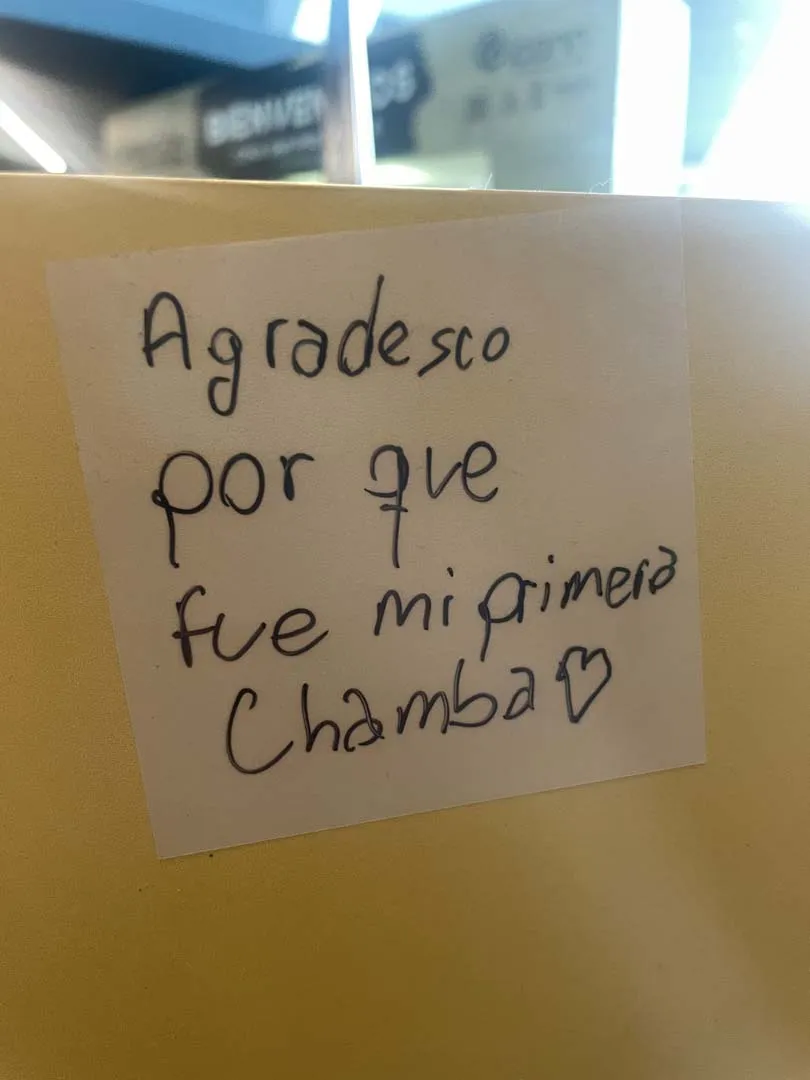 BIENVENIDOS
Agradesco
por que
fue mi primera
Chamba